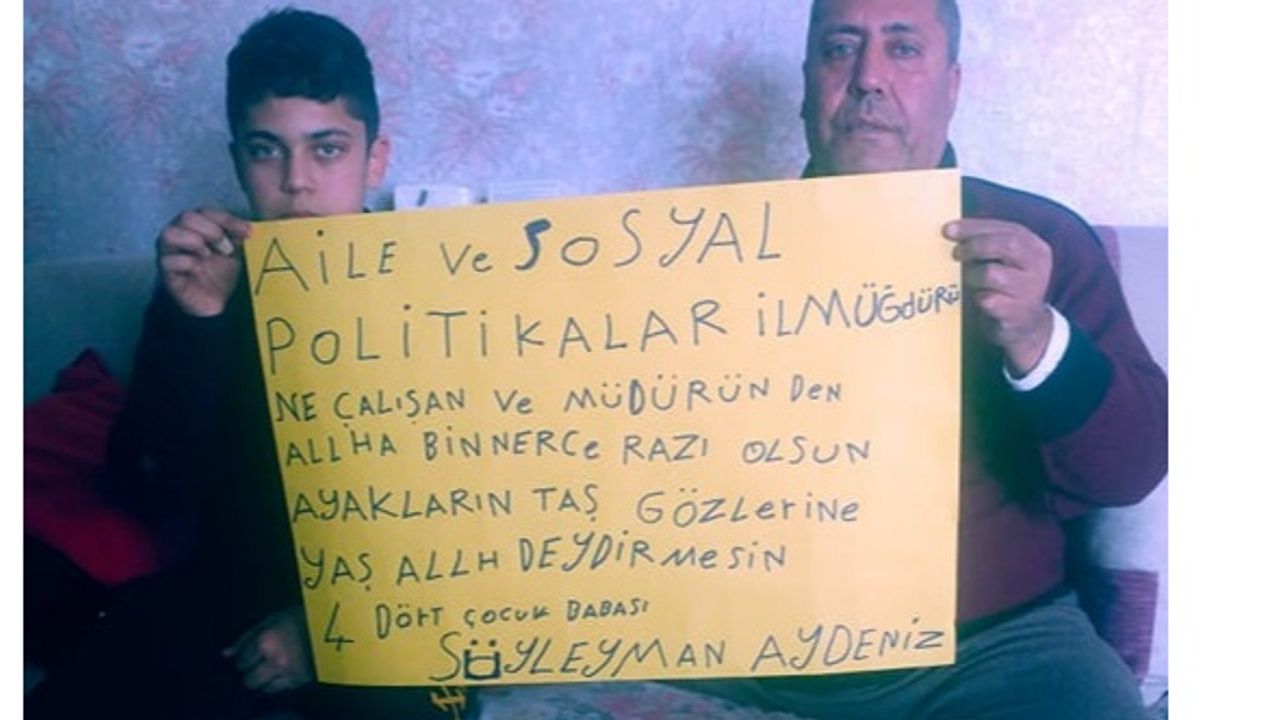 AiLE Ve SOSYAL
POLiTiKALAR iLMÜĞdÜRÜ
NE ÇALIŞAN Ve MÜDÜRÜN Den
ALLHA BiNNERCe RAZI OLSUN
AYAKLARIN TAŞ GÖZLeriNe
YAŞ ALLH DEYDiRMeSiN
4 DÖRT ÇOCUK BABASI
SÜYLEYMAN AYDENiZ